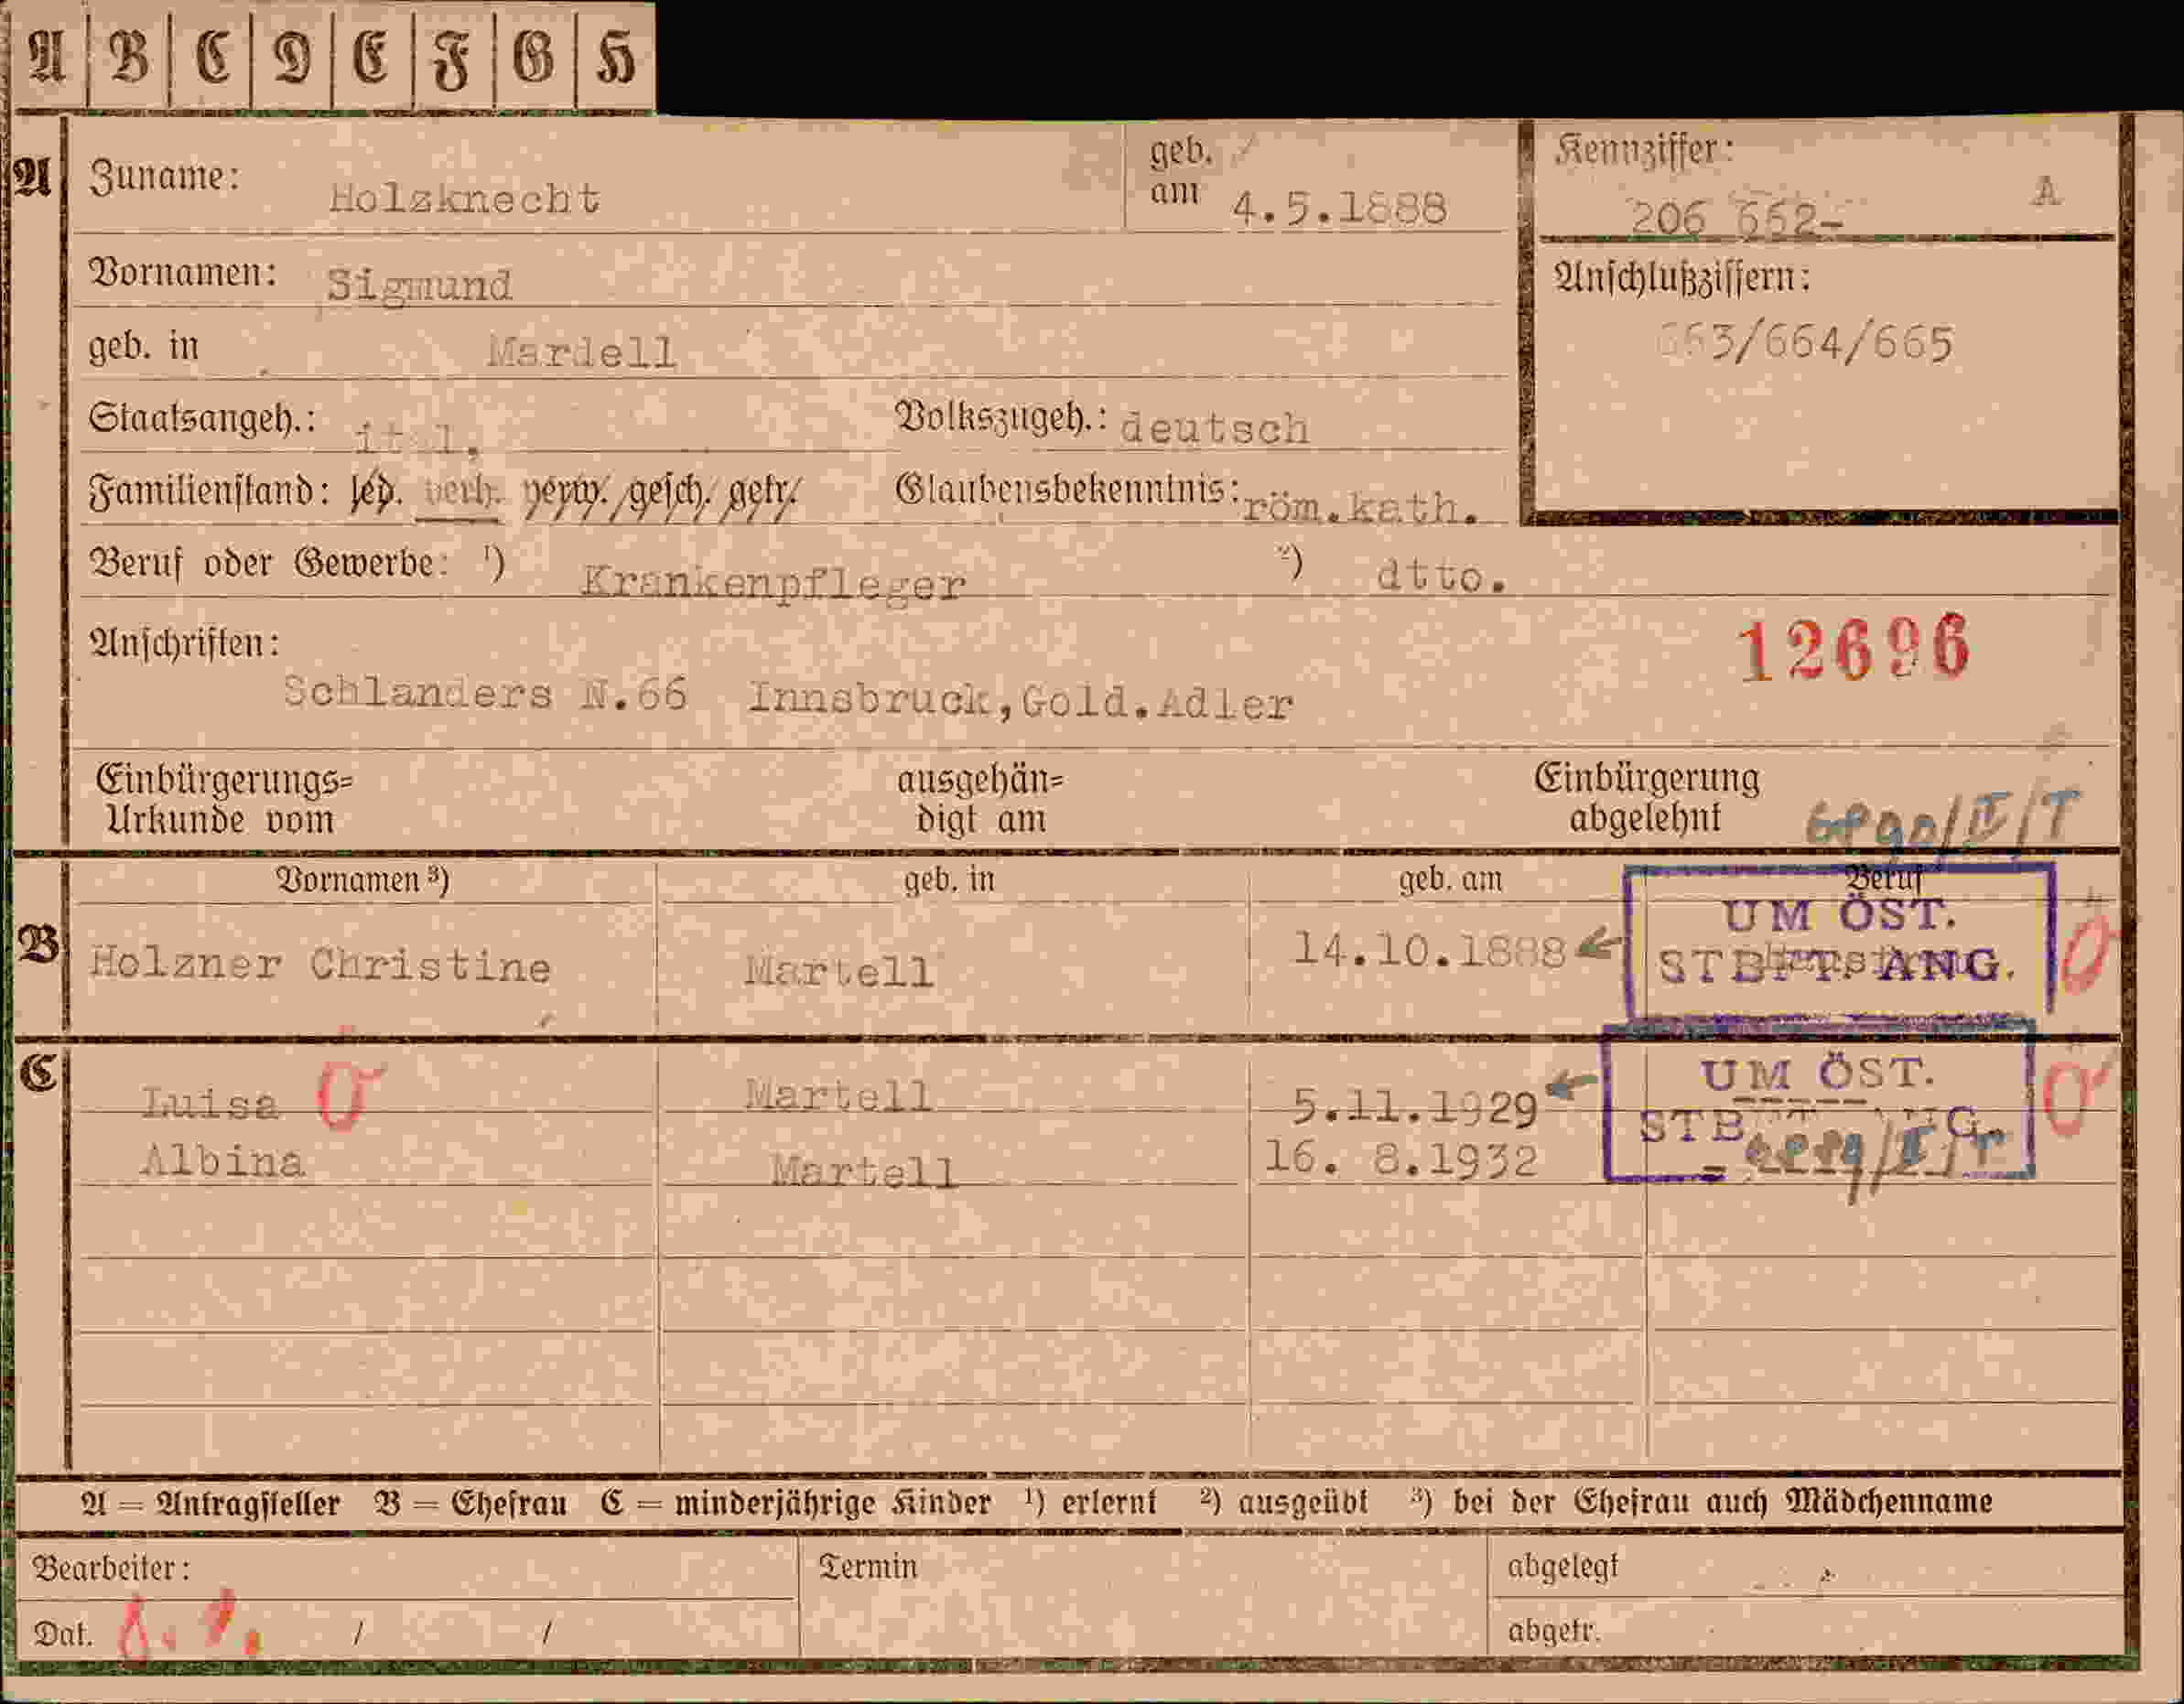 A B C D E F G H
A Zuname: Holzknecht geb. am 4.5.1888 Kennziffer: 206 662- A
Vornamen: Sigmund Anschlußziffern:
geb. in Mardell 663/664/665
Staatsangeh.: ital. Volkszugeh.: deutsch
Familienstand: led. verh. verw. gesch. getr. Glaubensbekenntnis: röm.kath.
Beruf oder Gewerbe: ¹) Krankenpfleger ²) dtto.
Anschriften: 12696
Schlanders N.66 Innsbruck,Gold.Adler
Einbürgerungs= ausgehän= Einbürgerung
Urkunde vom digt am abgelehnt
Vornamen ³) geb. in geb. am Beruf
UM ÖST.
B Holzner Christine Martell 14.10.1888 STBTTS ANG.
C UM ÖST.
Luisa Martell 5.11.1929
STB G.
Albina Martell 16. 8.1932
A = Antragsteller B = Ehefrau C = minderjährige Kinder ¹) erlernt ²) ausgeübt ³) bei der Ehefrau auch Mädchenname
Bearbeiter: Termin abgelegt
Dat. / / abgetr.